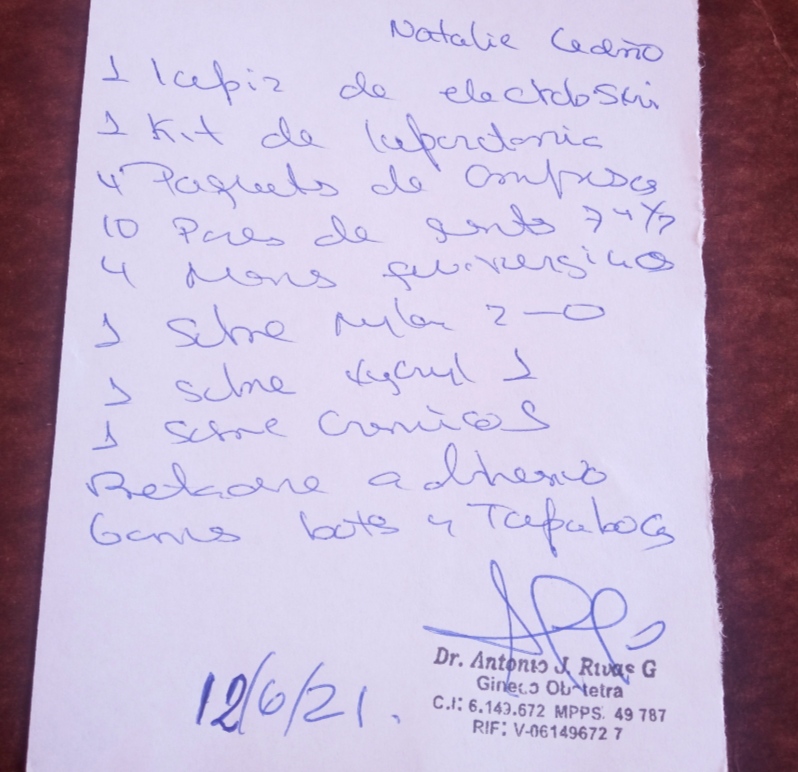 Natalie Cedeño
1 lapiz de electro
1 Kit de laparotomia
4 Paquets de Compresas
10 Pares de 7 y 7½
4 Monos quirurgicos
1 sobre nylon 2-0
1 sobre vycryl 1
1 sobre Cromicos
Betadine adhesivo
Gorros botas y Tapabocas
12/6/21.
Dr. Antonio J. Rivas G
Gineco Obstetra
C.I: 6.149.672 MPPS. 49 787
RIF: V-06149672 7